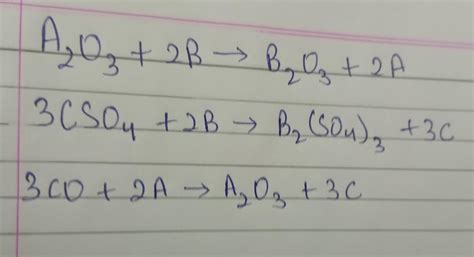 A₂O₃ + 2B → B₂O₃ + 2A
3CSO₄ + 2B → B₂(SO₄)₃ + 3C
3CO + 2A → A₂O₃ + 3C